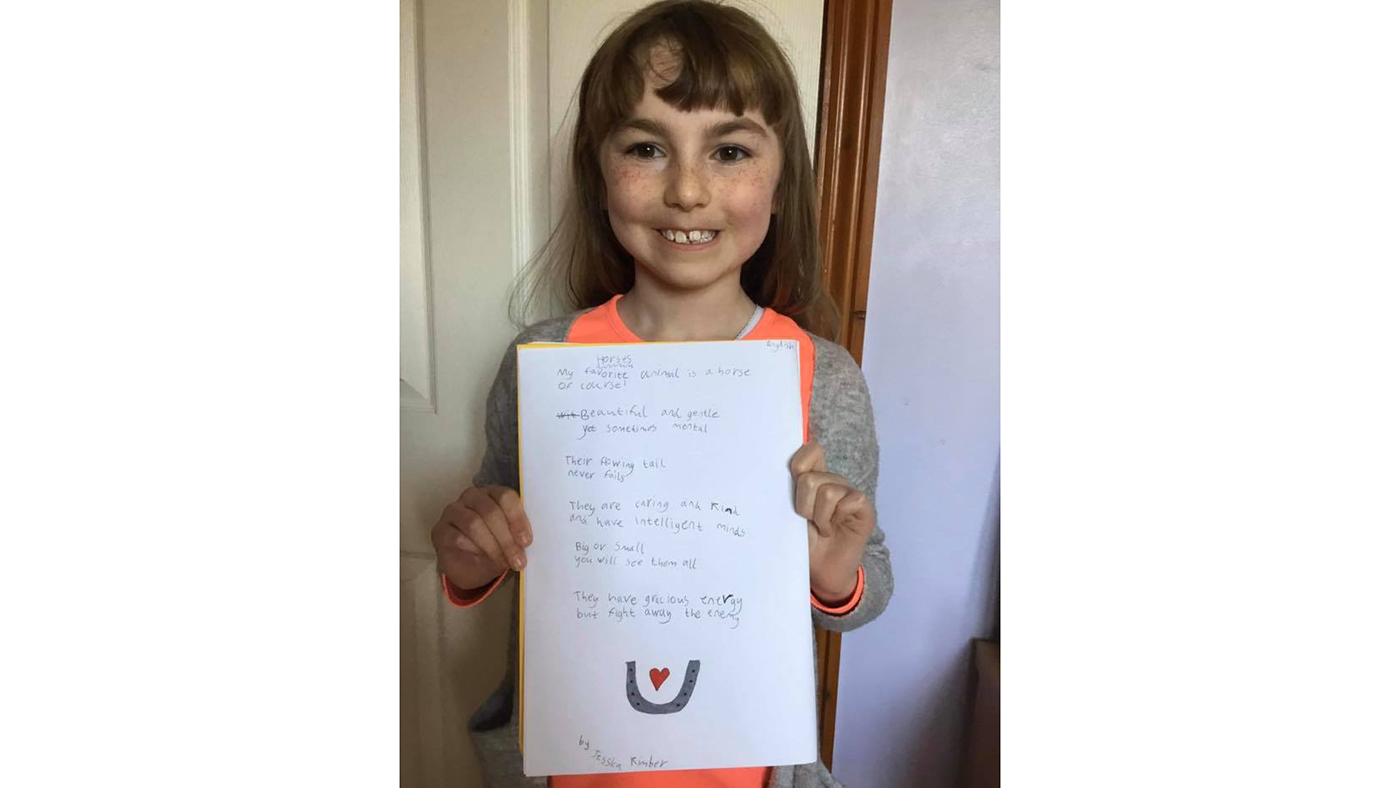 English
Horses
My favorite animal is a horse
of course!
wit Beautiful and gentle
yet sometimes mental
Their flowing tail
never fails
They are caring and kind
and have intelligent minds
Big or small
you will see them all
They have gracious energy
but fight away the enemy
by
Jessica Rimber